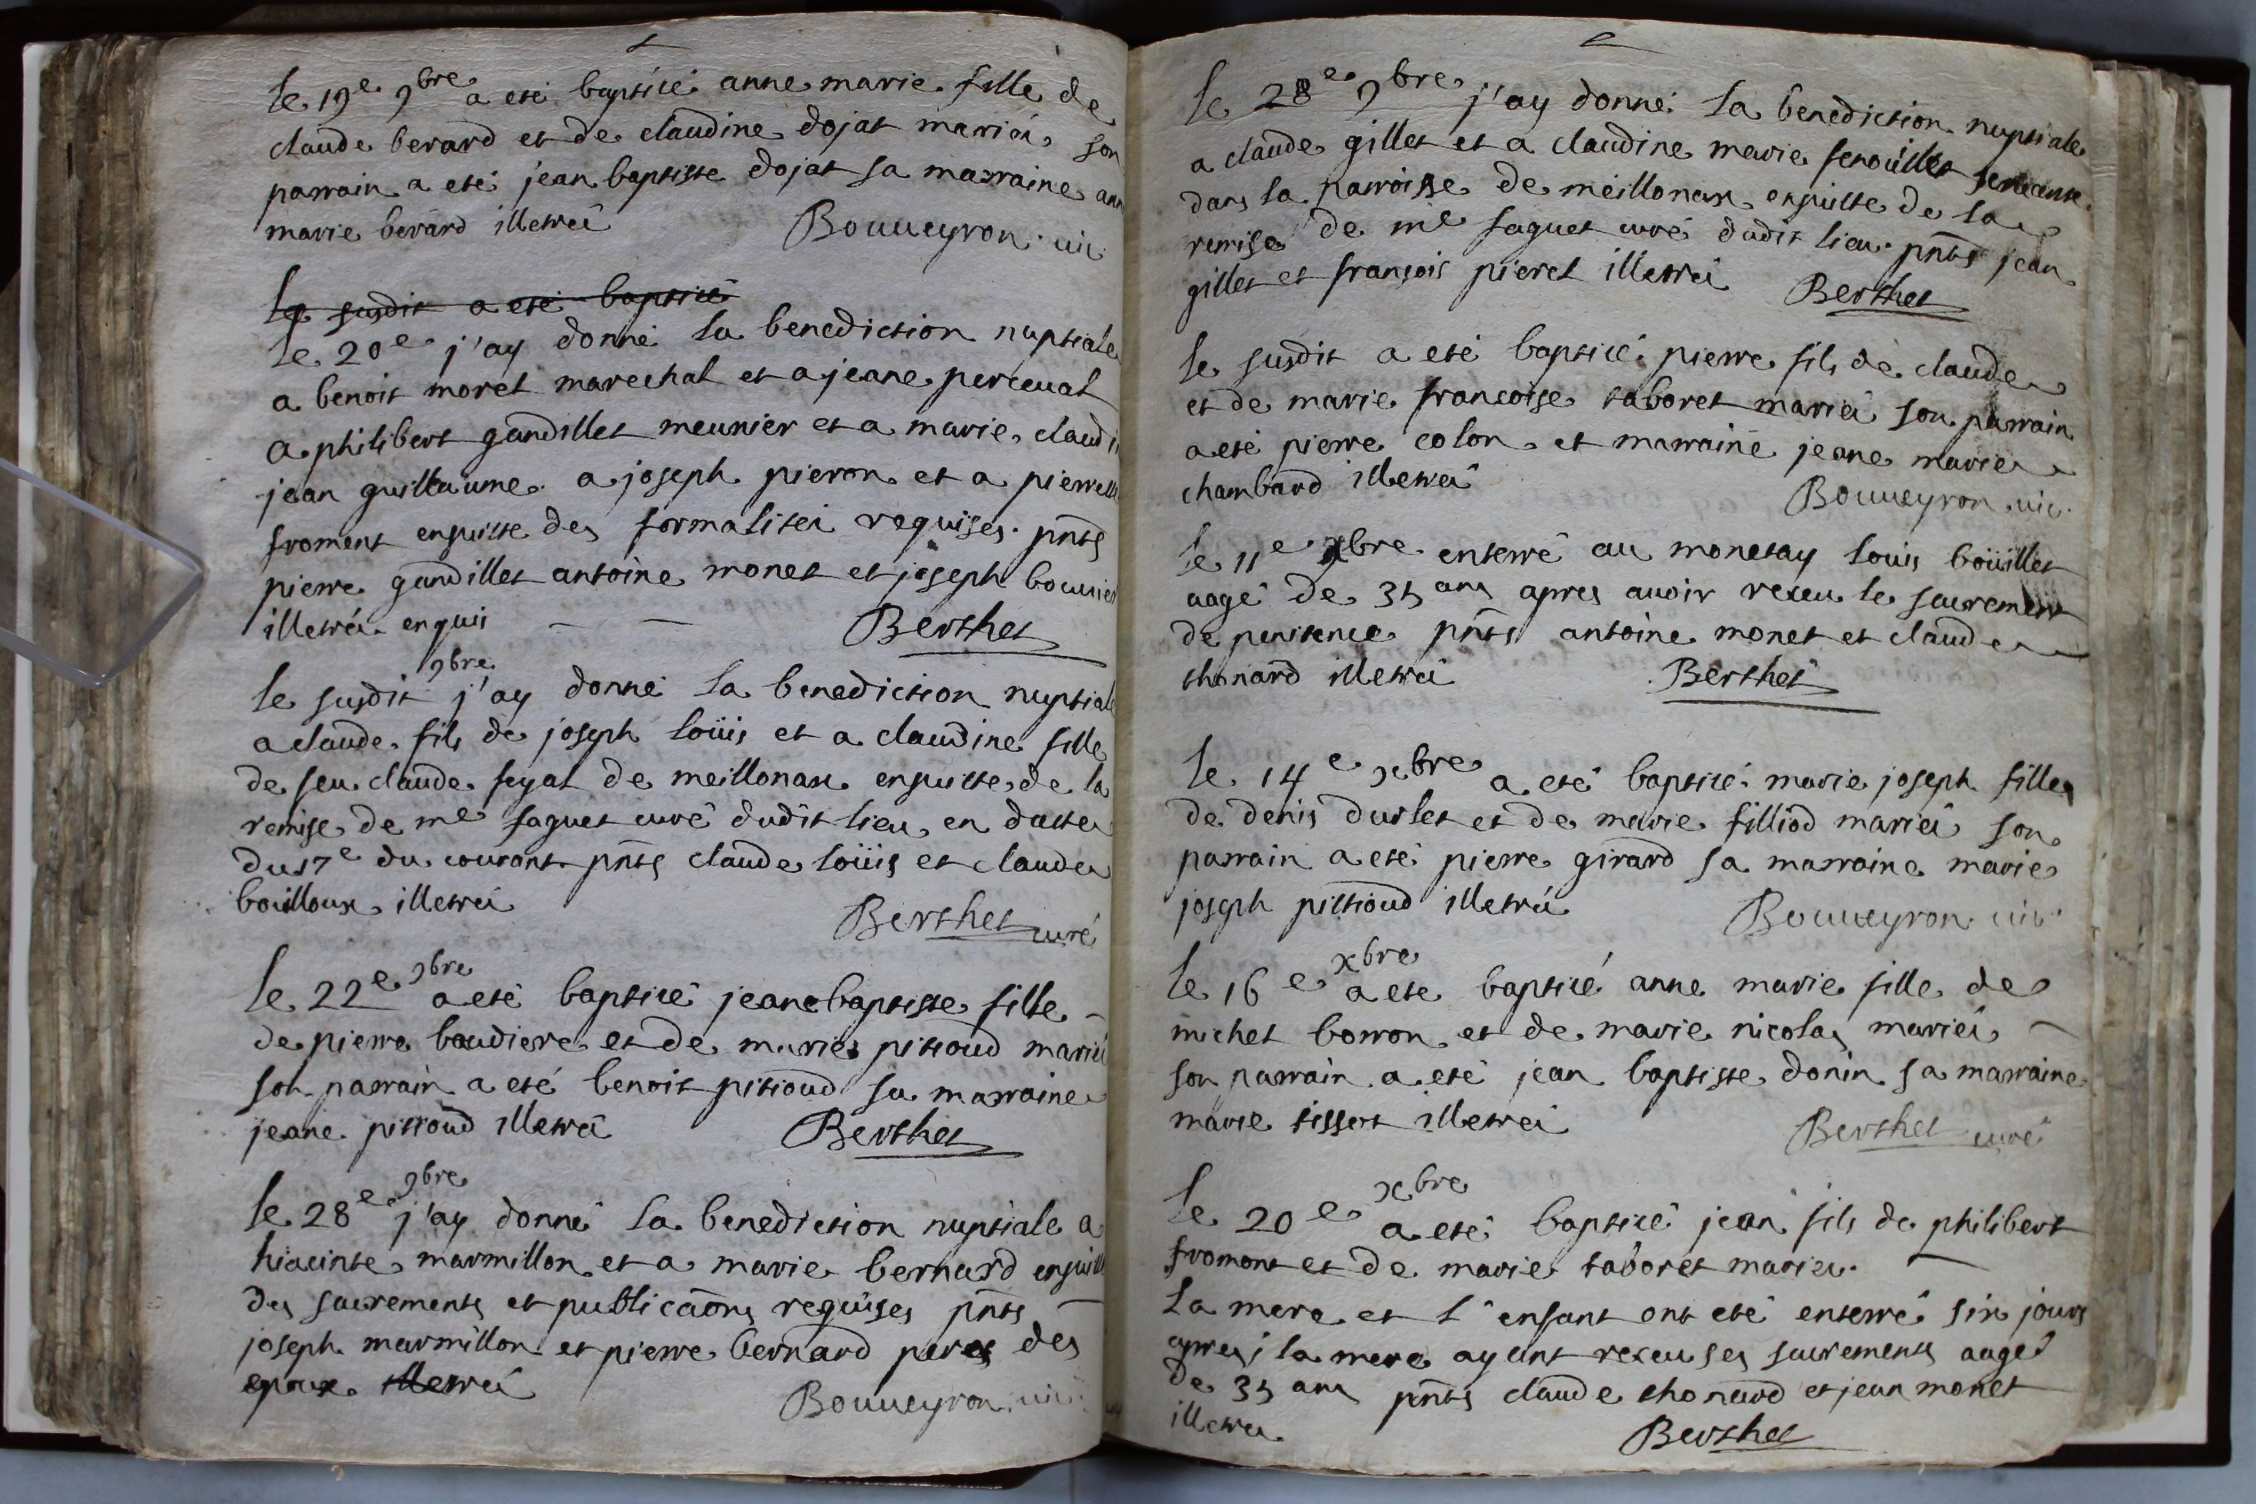 le 19e 9bre a eté bapticé anne marie fille de
claude berard et de claudine dojat mariéś son
parrain a eté jean baptiste dojat sa marraine ann
marie berard illetréś Bouueyron vic
le susdit a eté bapticé
le 20e j'ay donné la benediction nuptiale
a benoit moret marechal et a jeane perceual
a philibert gandillet meunier et a marie claudi
jean guillaume a joseph pieron et a pierrett
froment ensuitte des formalitéś requises pnts
pierre gandillet antoine monet et joseph bouuier
illetréś enquis Berthet
le susdit 9bre j'ay donné la benediction nuptial
a claude fils de joseph loüis et a claudine fille
de feu claude feyat de meillonax ensuitte de la
remise de me faguet curé dudit lieu en datte
du 17e du courant pnts claude loüis et claude
bouilloux illetréś Berthet curé
le 22e 9bre a eté bapticé jeane baptiste fille
de pierre baudiere et de marie pitioud mariéś
son parrain a eté benoit pitioud sa marraine
jeane pitioud illetréś Berthet
le 28e 9bre j'ay donné la benediction nuptiale a
hiacinte marmillon et a marie bernard ensuitt
des sacrements et publicaōns requises pnts
joseph marmillon et pierre bernard peres des
epoux illetréś Bouueyron vic
le 28e 9bre j'ay donné la benediction nuptiale
a claude gillet et a claudine marie fenoüillet
dans la parroisse de meillonax ensuitte de la
remise de me faguet curé dudit lieu pnts jean
gillet et françois pieret illetréś Berthet
le susdit a eté bapticé pierre fils de claude
et de marie francoise taboret mariéś son parrain
a eté pierre colon et marraine jeane marie
chambard illetréś Bouueyron vic
le 11e xbre enterré au monetay loüis boüillet
aagé de 35 ans apres auoir receu le sacrement
de penitence pnts antoine monet et claude
thonard illetréś Berthet
le 14e xbre a eté bapticé marie joseph fille
de denis durlet et de marie filliod mariéś son
parrain a eté pierre girard sa marraine marie
joseph pittioud illetréś Bouueyron vic
le 16e xbre a eté bapticé anne marie fille de
michel borron et de marie nicolas mariéś
son parrain a eté jean baptiste donin sa marraine
marie tissot illetréś Berthet curé
le 20e xbre a eté bapticé jean fils de philibert
fromont et de marie taboret mariés
La mere et l'enfant ont eté enterré six jours
apres; la mere ayant receu ses sacrements aagé
de 35 ans pnts claude thonard et jean monet
illetrés Berthet